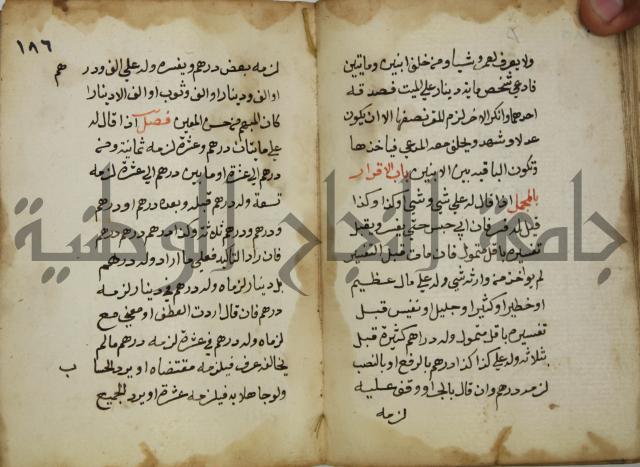 ولا يعرف لعمرو شيا ومن خلق ابنين ومايتين
فادعى شخص ماية دينار على الميت فصدقه
احدهما وانكر الاخر لزم للمقر نصفها الا ان يكون
عدلا وشهد ويحلق معه المدعي فياخذها
وتكون الباقية بين الابنين باب الاقرار
بالمجمل اذا قال له علي شي وشي وكذا وكذا
قيل له فسر فان ابي حبس حتى يفسر ويقبل
تفسيره باقل متمول فان مات قبل التفسير
لم يواخذ من وارثه شي وله علي مال عظيم
او خطير او كثير او جليل او نفيس قبل
تفسيره باقل متمول وله دراهم كثيرة قبل
بثلاثة وله علي كذا كذا درهم بالرفع او بالنصب
لزمه درهم وان قال بالجر او وقف عليه
لزمه
١٨٦
لزمه بعض درهم ويفسره وله علي الف ودر هم
او الف ودينار او الف وثوب او الف الا دينارا
كان المبهم من جنس المعين فصل اذا قال له
علي ما بين درهم وعشرة لزمه ثمانية ومن
درهم الى عشرة او ما بين درهم الى عشرة لزمه
تسعة وله درهم قبله وبعده درهم او درهم
ودرهم ودرهم ثلاثة وكذا درهم درهم درهم
فان اراد التاكيد فعلى ما اراد وله درهم
بل دينار لزماه وله درهم في دينار لزمه
درهم فان قال اردت العطف او معنى مع
لزماه وله درهم في عشرة لزمه درهم مالم
يخالفه عرف فيلزمه مقتضاه او يريد الحسا ب
ولو جاهلا به فيلزمه عشرة او يريد الجميع
جامعة النجاح الوطنية